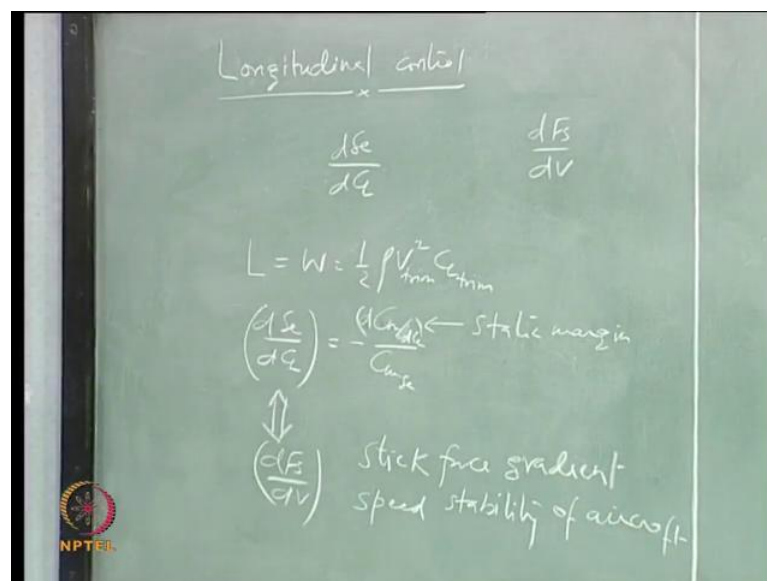 Longitudinal control
dδe/dCL dFs/dV
L = W = 1/2 ρV²trim CLtrim
(dδe/dCL) = - (dCm/dCL)/Cmδe ← static margin
⇕
(dFs/dV) stick force gradient
speed stability of aircraft
NPTEL